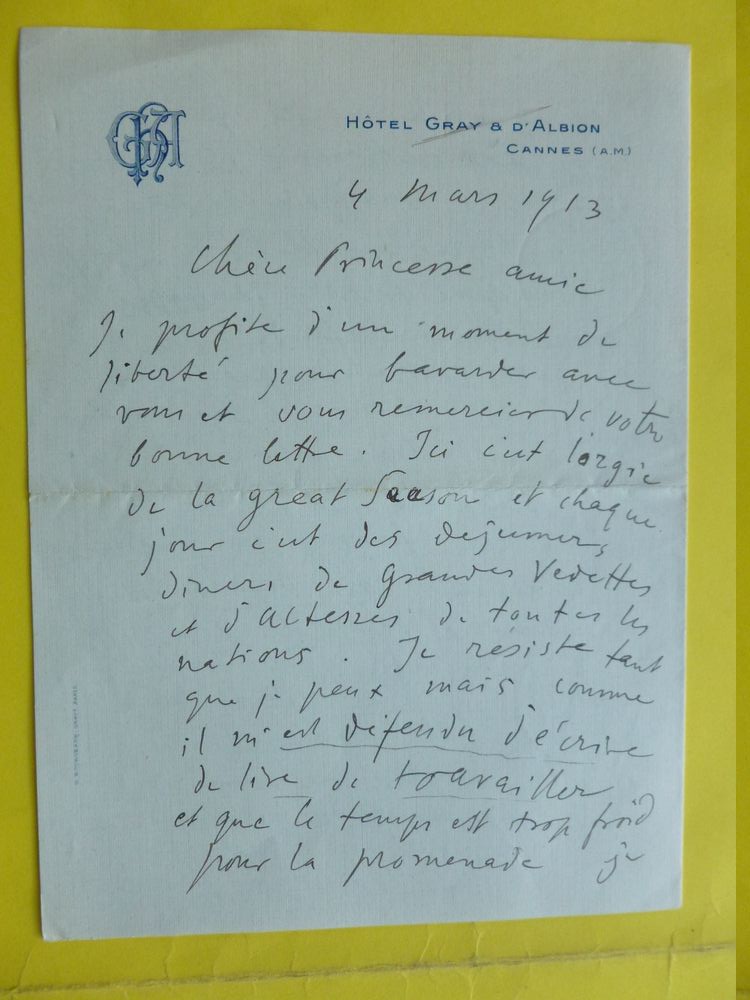 GHA
HÔTEL GRAY & D'ALBION
CANNES (A.M.)
4 Mars 1913
Chère Princesse amie
Je profite d'un moment de
liberté pour bavarder avec
vous et vous remercier de votre
bonne lettre. Ici c'est l'orgie
de la great Season et chaque
jour c'est des dejeuners,
diners de Grandes Vedettes
et d'Altesses de toutes les
nations. Je résiste tant
que je peux mais comme
il m'est défendu d'écrire
de lire de travailler
et que le temps est trop froid
pour la promenade je